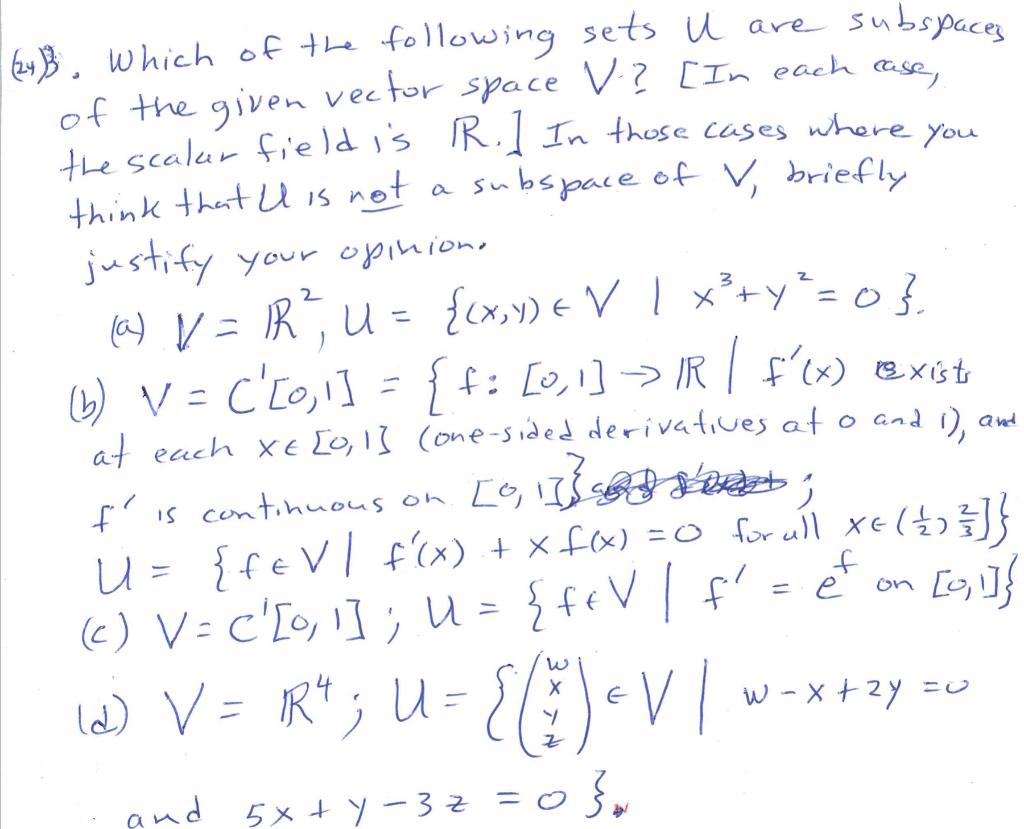 (24) 3. Which of the following sets U are subspaces
of the given vector space V? [In each case,
the scalar field is ℝ.] In those cases where you
think that U is not a subspace of V, briefly
justify your opinion.
(a) V = ℝ², U = {(x,y) ∈ V | x³ + y² = 0}.
(b) V = C'[0,1] = {f: [0,1] → ℝ | f'(x) exists
at each x ∈ [0,1] (one-sided derivatives at 0 and 1), and
f' is continuous on [0,1]};
U = {f ∈ V | f'(x) + x f(x) = 0 for all x ∈ (1/2, 2/3]}
(c) V = C'[0,1]; U = {f ∈ V | f' = e^f on [0,1]}
(d) V = ℝ⁴; U = {(w x y z) ∈ V | w - x + 2y = 0
and 5x + y - 3z = 0}.